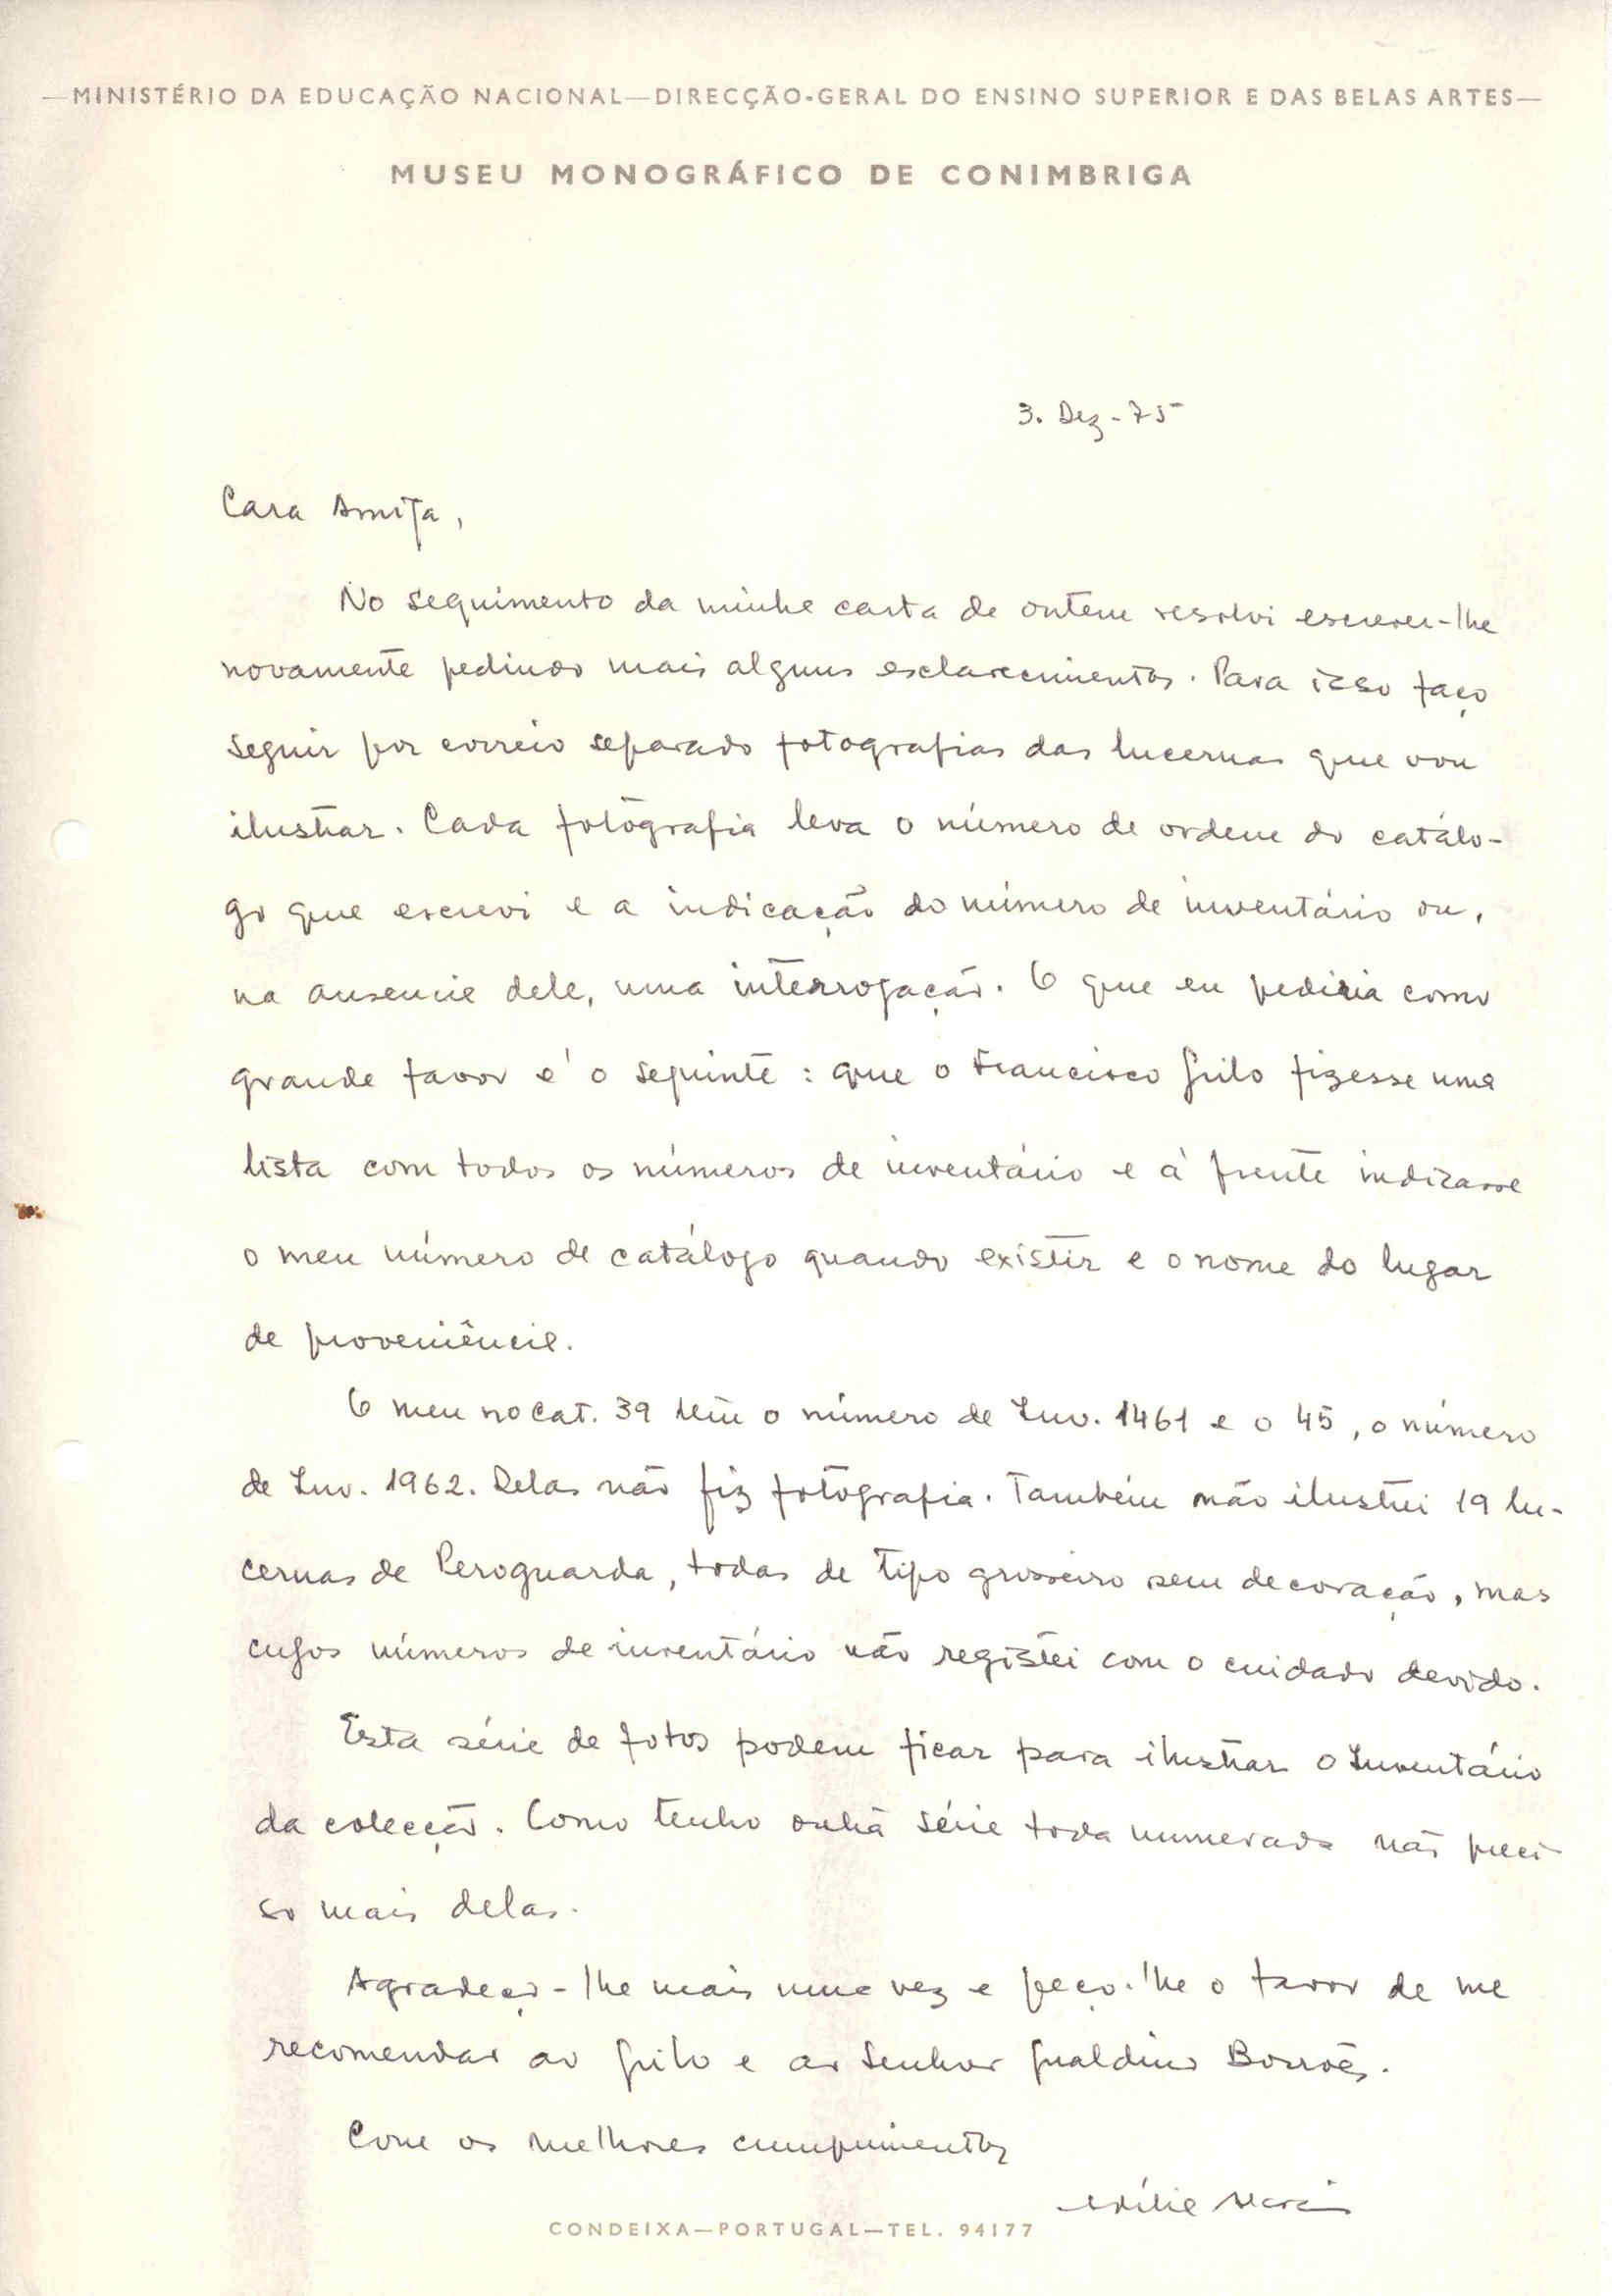 —MINISTÉRIO DA EDUCAÇÃO NACIONAL—DIRECÇÃO-GERAL DO ENSINO SUPERIOR E DAS BELAS ARTES—
MUSEU MONOGRÁFICO DE CONIMBRIGA
3. Dez - 75
Cara Amiga,
No seguimento da minha carta de ontem resolvi escrever-lhe
novamente pedindo mais alguns esclarecimentos. Para isso faço
seguir por correio separado fotografias das lucernas que vou
ilustrar. Cada fotografia leva o número de ordem do catálo-
go que escrevi e a indicação do número de inventário ou,
na ausencia dele, uma interrogação. O que eu pediria como
grande favor é o seguinte: que o Francisco Grilo fizesse uma
lista com todos os números de inventário e à frente indicasse
o meu número de catálogo quando existir e o nome do lugar
de proveniência.
O meu no cat. 39 tem o número de Inv. 1461 e o 45, o número
de Inv. 1962. Delas não fiz fotografia. Também não ilustrei 19 lu-
cernas de Peroguarda, todas de tipo grosseiro sem decoração, mas
cujos números de inventário não registei com o cuidado devido.
Esta série de fotos podem ficar para ilustrar o Inventário
da colecção. Como tenho outra série toda numerada não preci-
so mais delas.
Agradeço-lhe mais uma vez e peço-lhe o favor de me
recomendar ao Grilo e ao Senhor Gualdino Borrões.
Com os melhores cumprimentos
Adília Alarcão
CONDEIXA—PORTUGAL—TEL. 94177